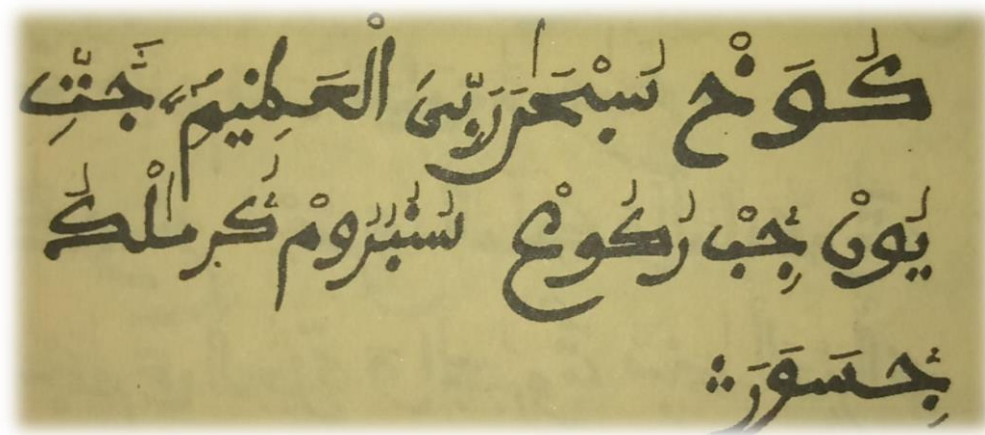 كُوَخْ سُبْحَنَ رَبِّىَ الْعَظِيمِ، جَتِّ
يُونْ جِبْ رُكُوعْ سُنْبُرُومْ كُرمُلْكُ
جِسَوَرَ؞